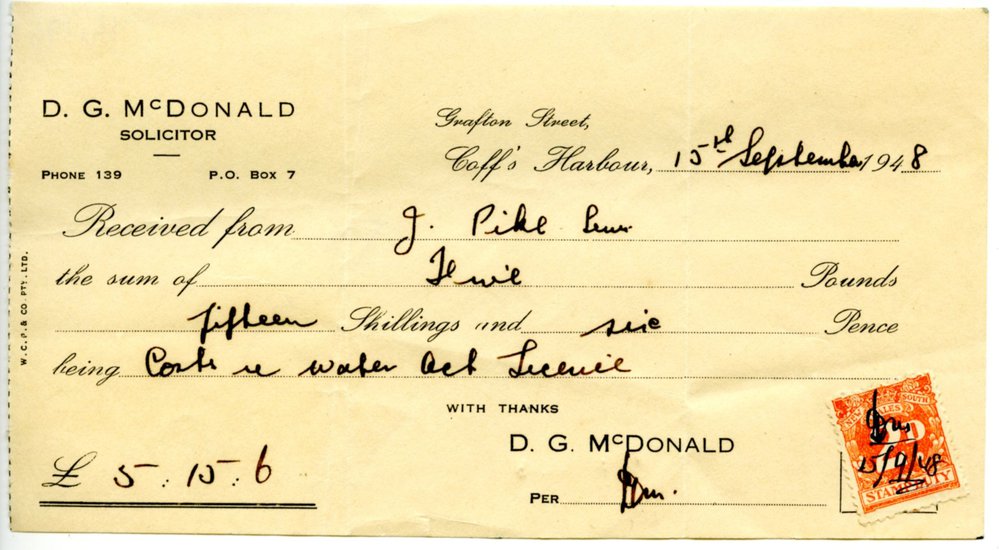 D. G. McDONALD
SOLICITOR
PHONE 139 P.O. BOX 7
Grafton Street,
Coff's Harbour, 15th September 1948
Received from J. Pike Senr.
the sum of Five Pounds
fifteen Shillings and six Pence
being Costs re Water Act Licence
WITH THANKS
D. G. McDONALD
£ 5. 15. 6
PER
W. C. P. & CO. PTY. LTD.
NEW SOUTH WALES
D
15/9/48
STAMP DUTY